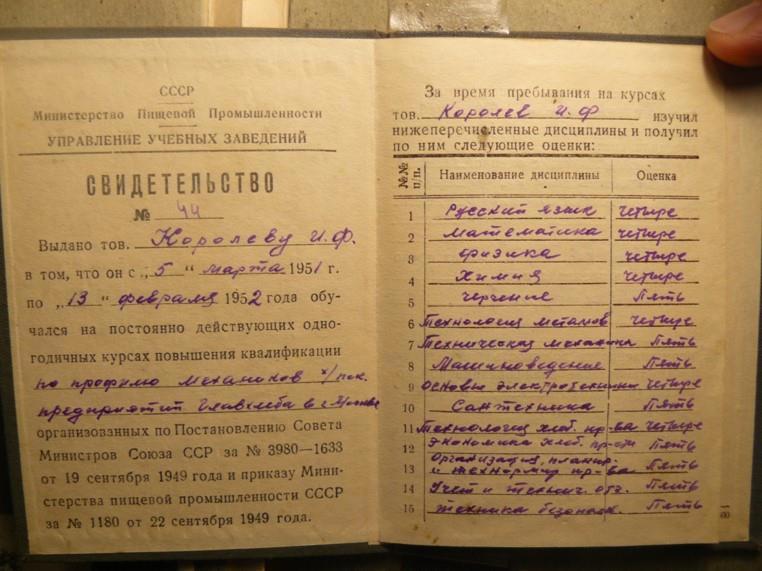 СССР
Министерство Пищевой Промышленности
УПРАВЛЕНИЕ УЧЕБНЫХ ЗАВЕДЕНИЙ
СВИДЕТЕЛЬСТВО
№ 44
Выдано тов. Королеву И.Ф.
в том, что он с „5" марта 1951 г.
по „13" февраля 1952 года обу-
чался на постоянно действующих одно-
годичных курсах повышения квалификации
по профилю механиков х/пек.
предприятий Главхлеба в г. Москве
организованных по Постановлению Совета
Министров Союза ССР за № 3980—1633
от 19 сентября 1949 года и приказу Мини-
стерства пищевой промышленности СССР
за № 1180 от 22 сентября 1949 года.
За время пребывания на курсах
тов. Королев И.Ф изучил
нижеперечисленные дисциплины и получил
по ним следующие оценки:
№№ п/п. Наименование дисциплины Оценка
1 Русский язык четыре
2 Математика четыре
3 Физика четыре
4 Химия четыре
5 Черчение Пять
6 Технология металов четыре
7 Техническая механика Пять
8 Машиноведение Пять
9 Основы электротехники четыре
10 Сантехника Пять
11 Технология хлеб. пр-ва четыре
12 Экономика хлеб. пр-ти Пять
13 Организация, планир.
и технормир пр-ва Пять
14 Учет и технич. отч. Пять
15 Техника безопасн. Пять